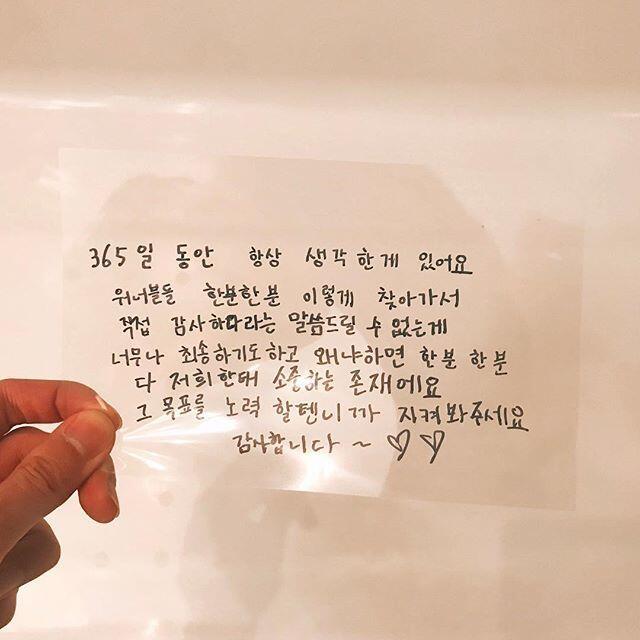 365일 동안 항상 생각한게 있어요
워너블들 한분한분 이렇게 찾아가서
직접 감사하다라는 말씀드릴 수 없는게
너무나 죄송하기도하고 왜냐하면 한분 한분
다 저희한태 소중하는 존재에요
그 목표를 노력 할텐니까 지켜봐주세요
감사합니다 ~ ♡♡